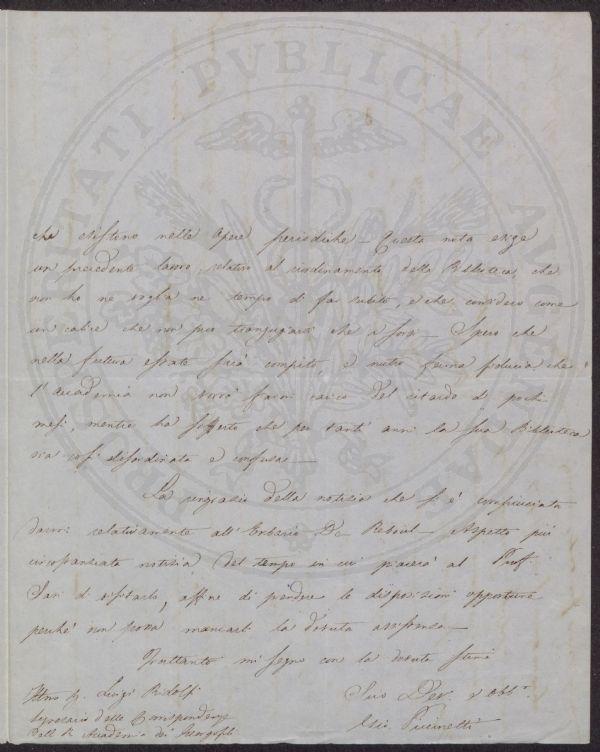 PROSPERITATI PVBLICAE AVGENDAE
che esistono nelle Opere periodiche — Questa nota esige
un precedente lavoro, relativo al riordinamento della Biblioteca, che
non ho ne voglia ne tempo di far subito, e che considero come
un calice che non può trangugiarsi che a sorsi — Spero che
nella futura estate sarà compito, e nutro ferma fiducia che
l'Accademia non vorrà farmi carico del ritardo di pochi
mesi, mentre ha sofferto che per tanti anni la sua Biblioteca
sia così disordinata e confusa —
La ringrazio della notizia che si è compiaciuta
darmi relativamente all'Erbario De Reboul — Aspetto più
circostanziata notizia del tempo in cui piacerà al Prof.
di visitarlo, affine di prendere le disposizioni opportune
perché non possa mancarli la dovuta assistenza —
Frattanto mi segno con la dovuta stima
Illmo Sr. Luigi Ridolfi
Segretario delle Corrispondenze
Dell'R. Accademia dei Georgofili
Suo Dev. e Obbl.